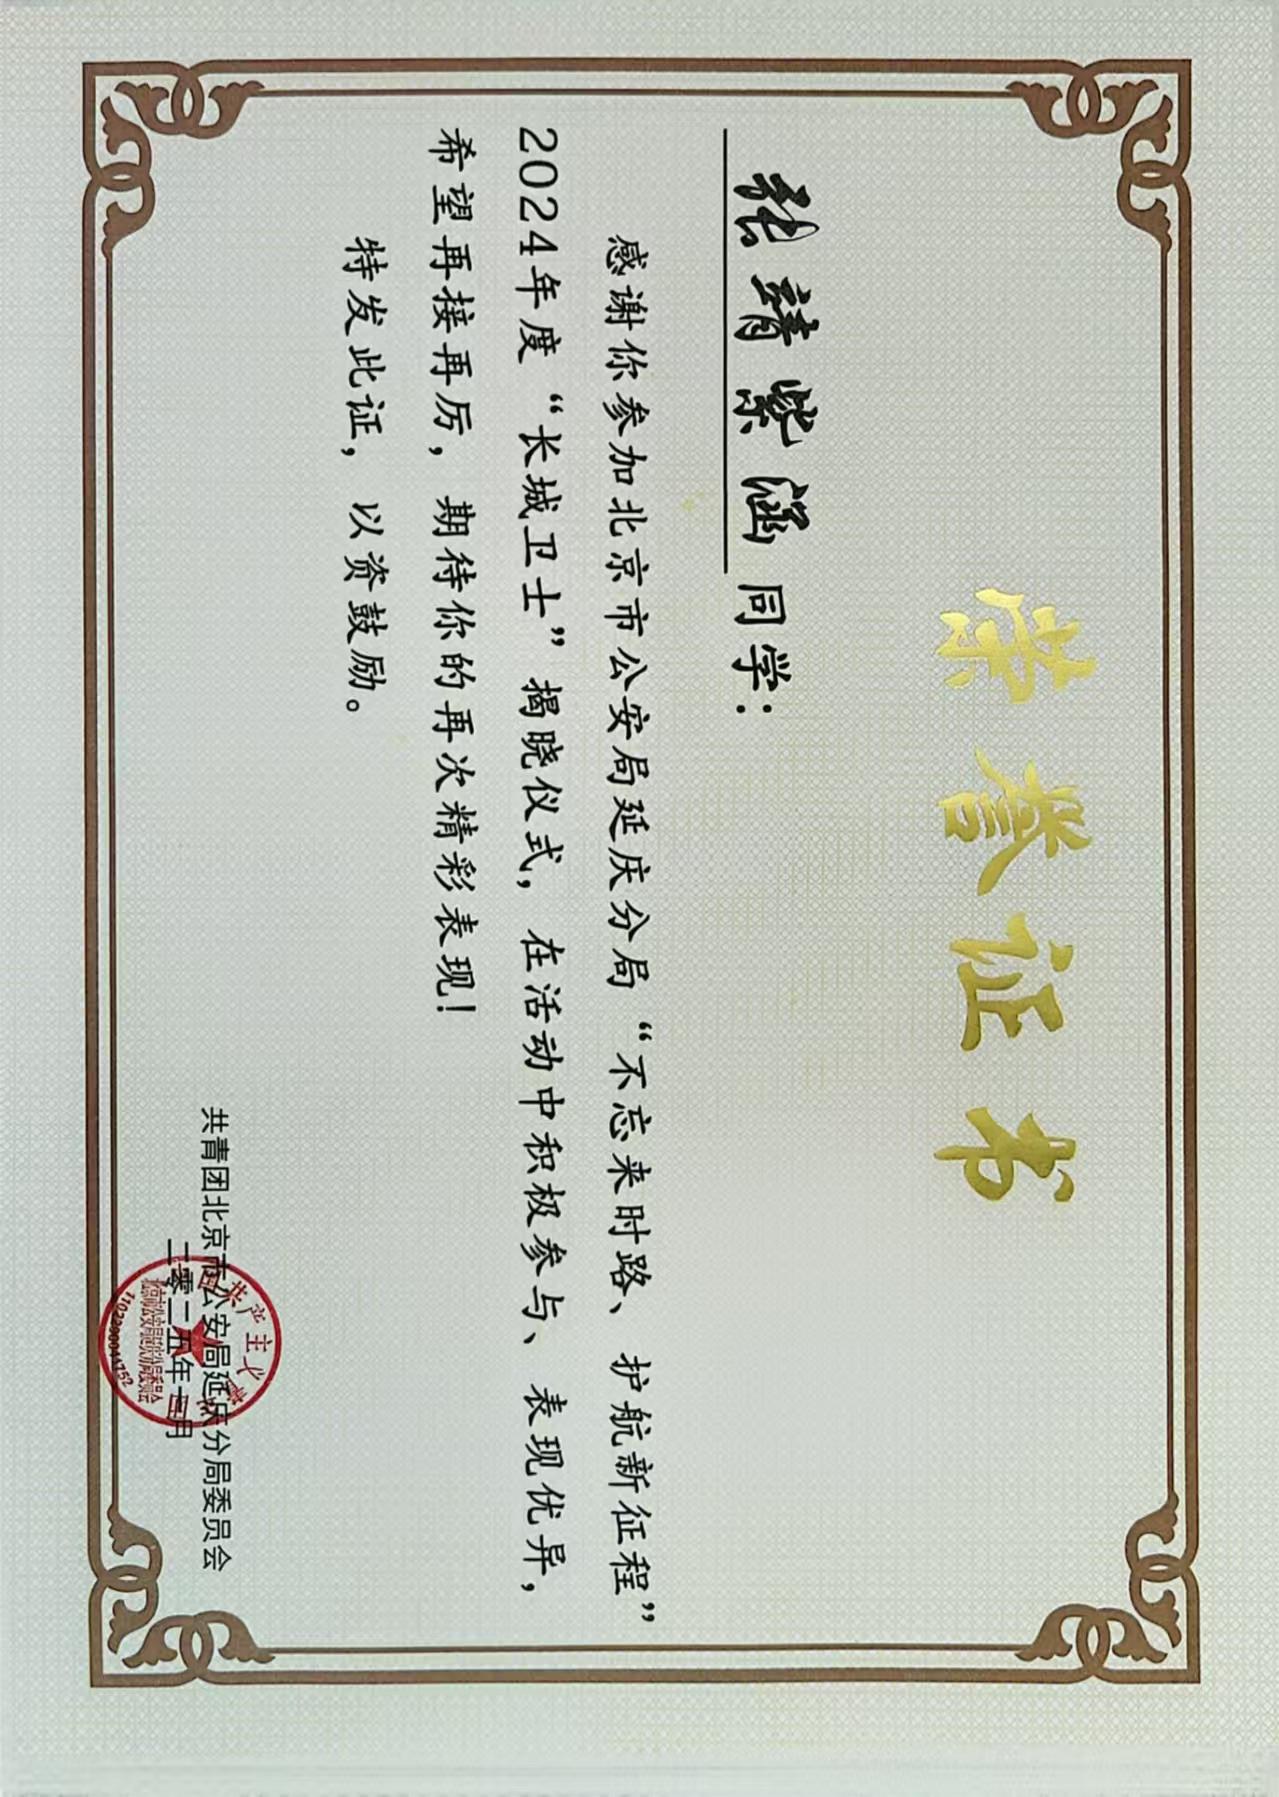 荣誉证书
张靖紫涵同学：
感谢你参加北京市公安局延庆分局“不忘来时路、护航新征程”
2024年度“长城卫士”揭晓仪式，在活动中积极参与、表现优异，
希望再接再厉，期待你的再次精彩表现！
特发此证，以资鼓励。
共青团北京市公安局延庆分局委员会
二零二五年一月